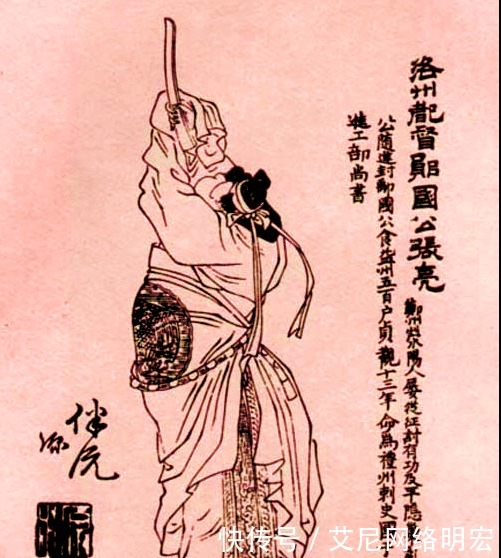 洛州都督鄖國公張亮
鄭州滎陽人屡從征討有功及平隐
公隨進封鄖國公食益州五百户貞觀十三年命為禮州刺史
進工部尚書
伴阮
源
快传号 / 艾尼网络明宏